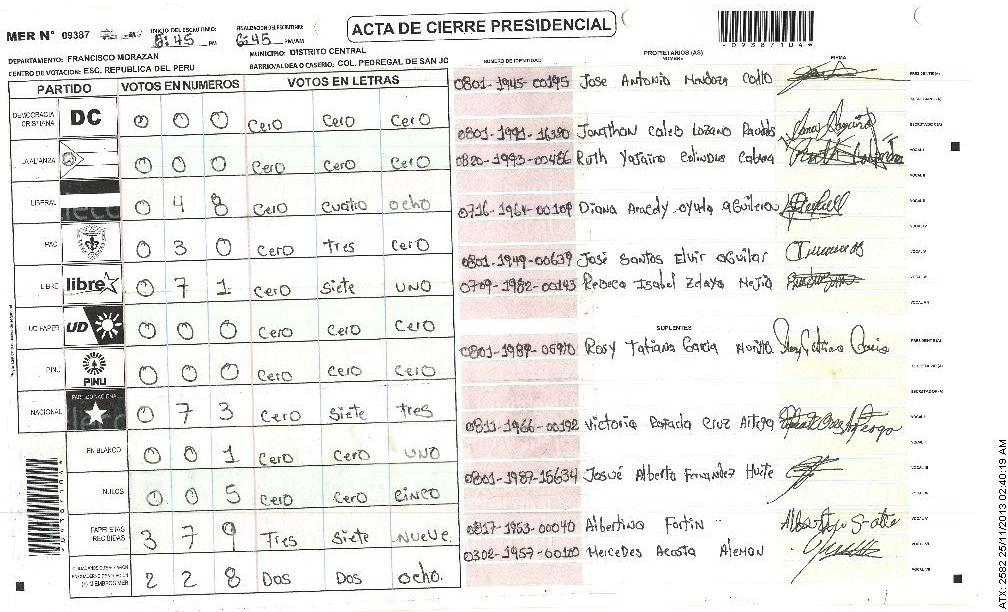 ACTA DE CIERRE PRESIDENCIAL
MER N° 09387
INICIO DEL ESCRUTINIO: 5:45 PM
FINALIZACION DEL ESCRUTINIO: 6:45 PM/AM
DEPARTAMENTO: FRANCISCO MORAZAN
MUNICIPIO: DISTRITO CENTRAL
CENTRO DE VOTACION: ESC. REPUBLICA DEL PERU
BARRIO/ALDEA O CASERIO: COL. PEDREGAL DE SAN JO
PARTIDO VOTOS EN NUMEROS VOTOS EN LETRAS
DEMOCRACIA CRISTIANA DC 0 0 0 Cero Cero Cero
LA ALIANZA 0 0 0 Cero Cero Cero
LIBERAL 0 4 8 Cero Cuatro Ocho
PAC 0 3 0 Cero Tres Cero
LIBRE libre 0 7 1 Cero Siete UNO
UD FAPER UD 0 0 0 Cero Cero Cero
PINU PINU 0 0 0 Cero Cero Cero
NACIONAL 0 7 3 Cero Siete Tres
EN BLANCO 0 0 1 Cero Cero UNO
NULOS 0 0 5 Cero Cero Cinco
PAPELETAS RECIBIDAS 3 7 9 Tres Siete Nueve.
2 2 8 Dos Dos Ocho.
NUMERO DE IDENTIDAD
PROPIETARIOS (AS)
NOMBRE
FIRMA
0801-1945-00195 Jose Antonio Mendoza PRESIDENTE(A)
SECRETARIO(A)
0801-1991-16380 Jonathon Caleb Lozano ESCRUTADOR(A)
0820-1993-00486 Ruth Yajaira VOCAL I
VOCAL II
0716-1964-00109 Diana Aracely
0801-1949-00639 José Santos Elvir Aguilar
0709-1982-00143 Rebeca Isabel Zelaya Mejia
SUPLENTES
0801-1989-05970 Rosy Tatiana Garcia Murillo PRESIDENTE(A)
SECRETARIO(A)
ESCRUTADOR(A)
0811-1966-00192 Victoria Cruz VOCAL I
VOCAL II
0801-1987-15634 Josué Alberto Fernandez VOCAL III
0817-1963-00040 Albertina Fortin
0302-1957-00100 Mercedes Acosta Aleman
ATX: 2582 25/11/2013 02:40:19 AM